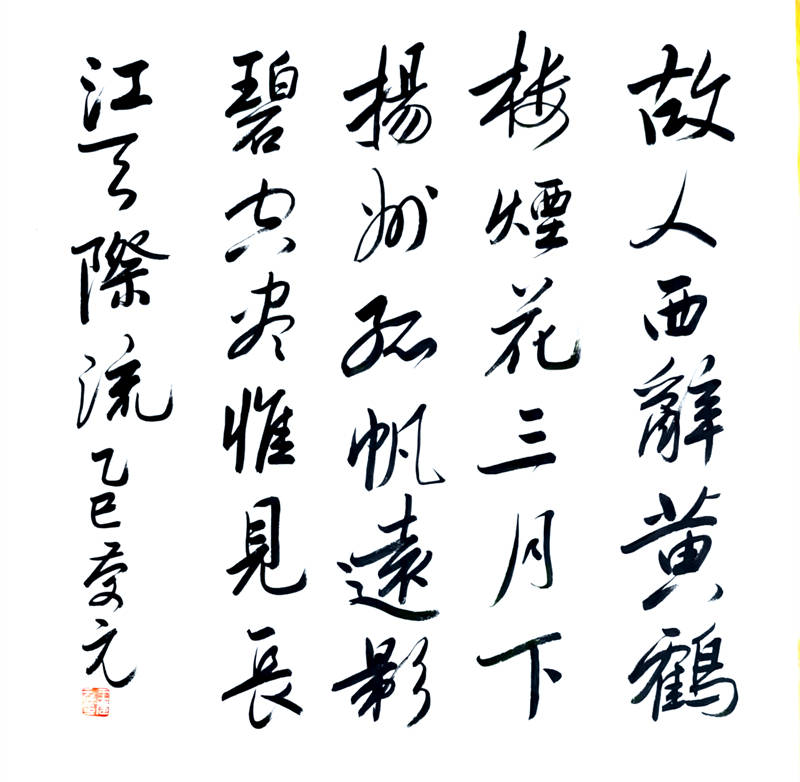 故人西辭黄鶴
楼煙花三月下
揚州孤帆遠影
碧空尽惟見長
江天際流乙巳慶元